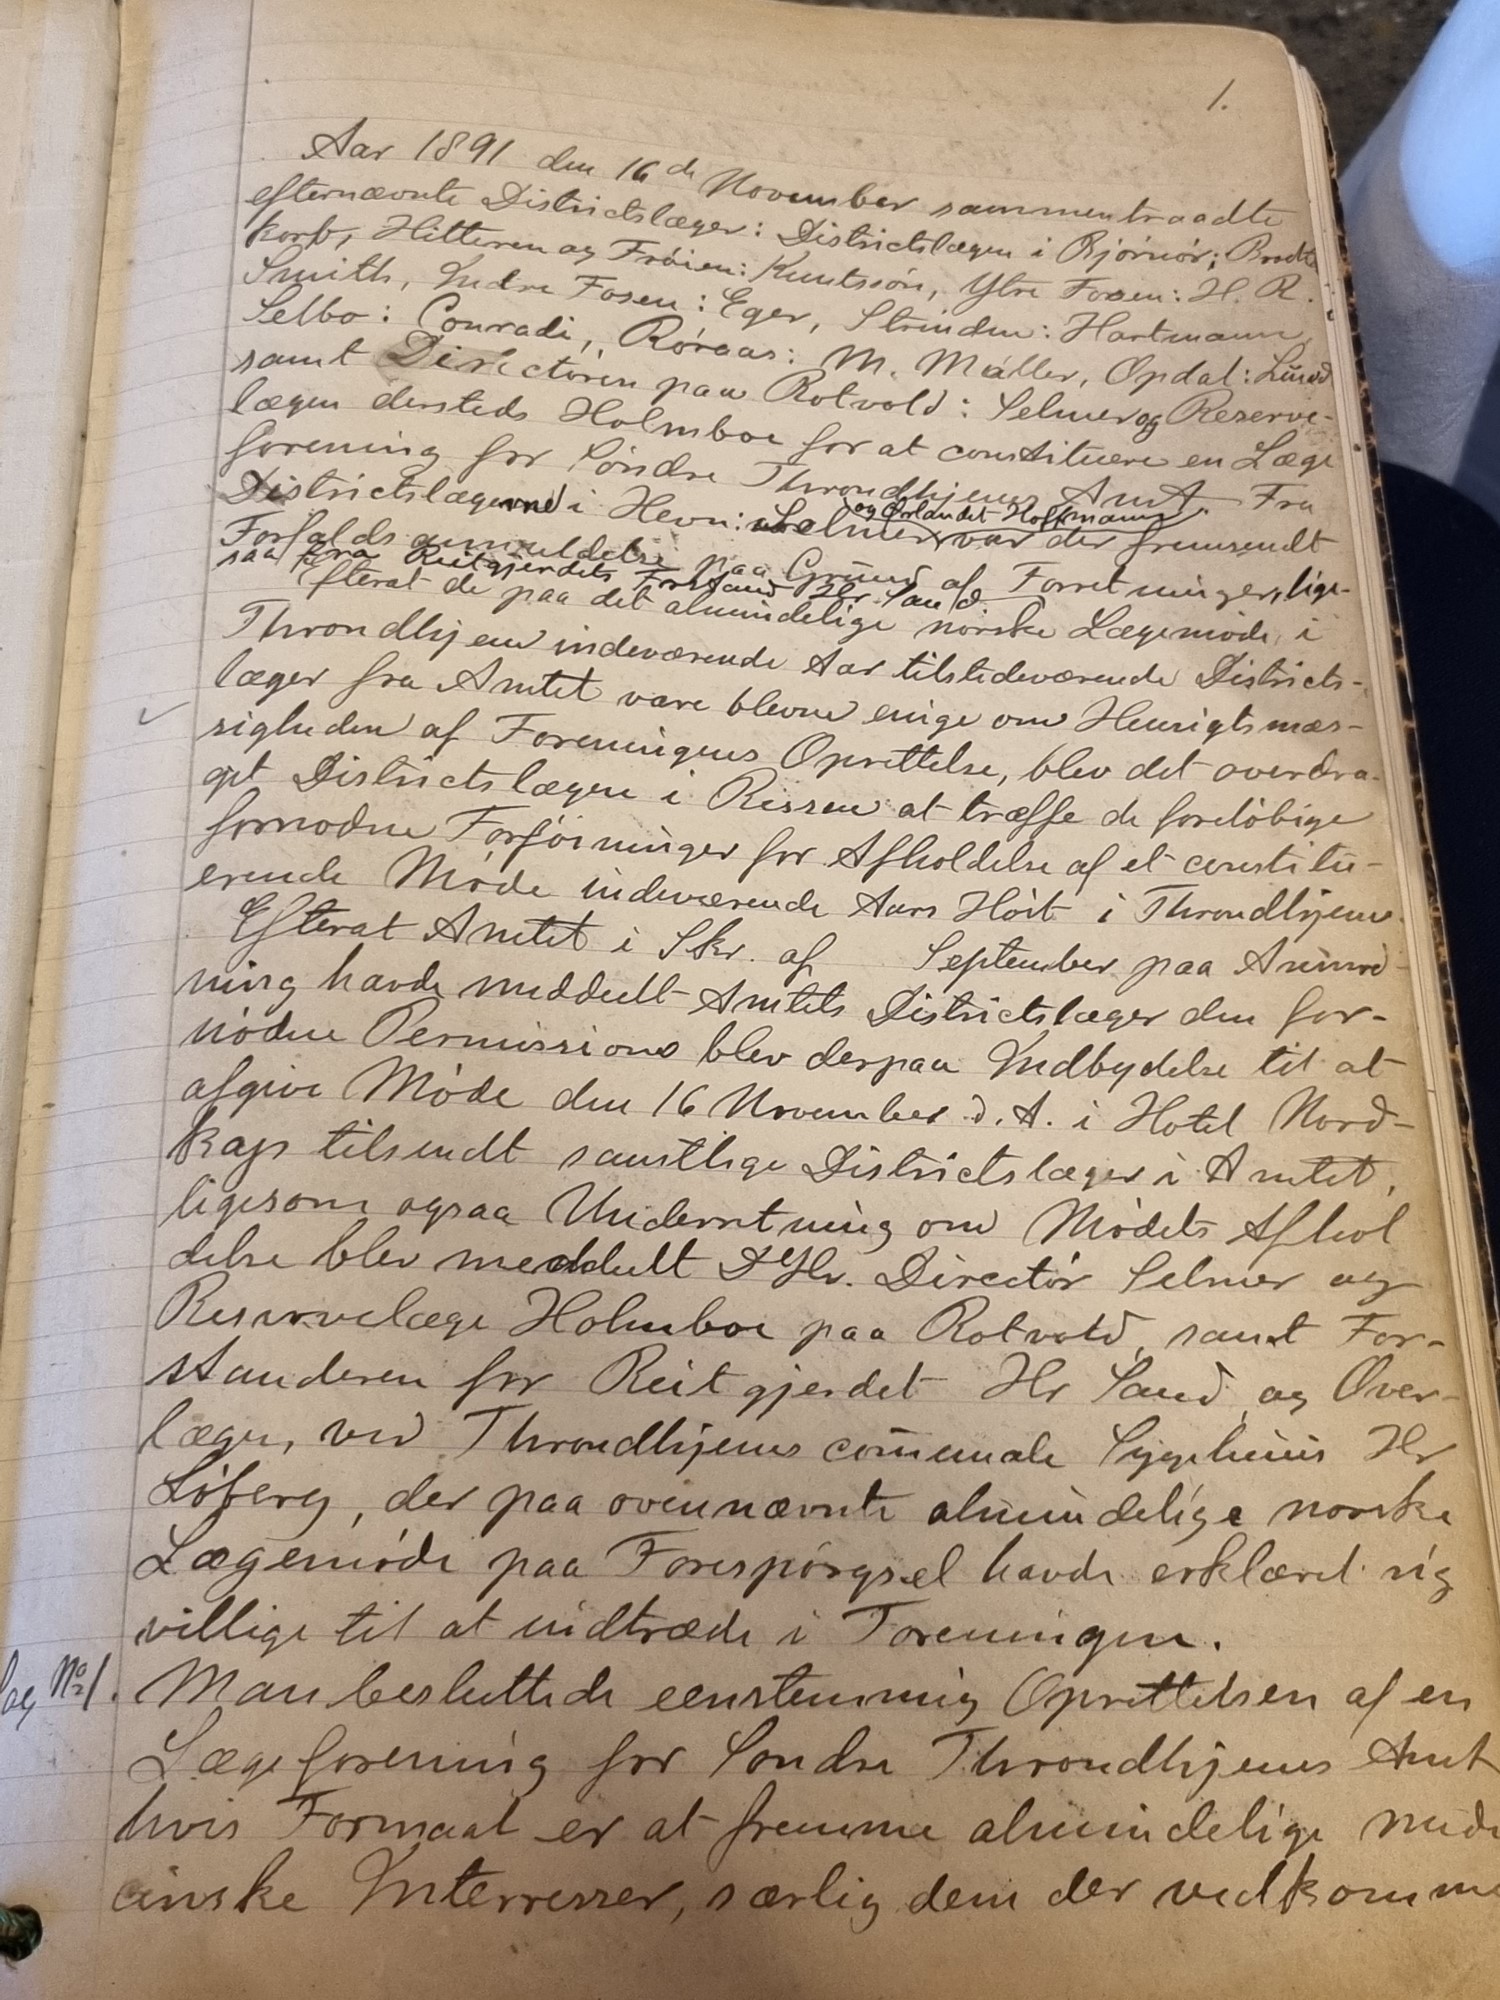 1.
Aar 1891 den 16de November sammentraadte
efternævnte Districtslæger: Districtslægen i Bjørnør; Brodt
korb, Hitteren og Frøien: Knutssøn, Ytre Fosen: H. R.
Smith, Indre Fosen: Eger, Strinden: Hartmann,
Selbo: Conradi, Røraas: M. Møller, Opdal: Lund
samt Directøren paa Rotvold: Selmer og Reserve-
lægen dersteds Holmboe for at constituere en Læge
forening for Søndre Throndhjems Amt. Fra
og Ørlandet Hoffmann
Districtslægerne i Hevn: Selmer var der fremsendt
Forfaldsanmeldelse paa Grund af Forretninger, lige-
saa fra Reitgjerdets Forstand Hr. Sand.
Efterat de paa det almindelige norske Lægemøde i
Throndhjem indeværende Aar tilstedeværende Districts-
læger fra Amtet vare blevne enige om Hensigtsmæs-
sigheden af Foreningens Oprettelse, blev det overdra-
get Districtslægen i Rissen at træffe de foreløbige
fornødne Forføininger for Afholdelse af et constitu-
erende Møde indeværende Aars Høst i Throndhjem.
Efterat Amtet i Skr. af September paa Anmod-
ning havde meddelt Amtets Districtslæger den for-
nødne Permission blev derpaa Indbydelse til at
afgive Møde den 16 November d. A. i Hotel Nord-
kap tilsendt samtlige Districtslæger i Amtet,
ligesom ogsaa Underretning om Mødets Afhol
delse blev meddelt DHr. Directør Selmer og
Reservelæge Holmboe paa Rotvold, samt For-
standeren for Reitgjerdet Hr Sand og Over-
lægen ved Throndhjems communale Sygehuus Hr
Løberg, der paa ovennævnte almindelige norske
Lægemøde paa Forespørgsel havde erklæret sig
villige til at indtræde i Foreningen.
No 1. Man besluttede eenstemmig Oprettelsen af en
Lægeforening for Søndre Throndhjems Amt
hvis Formaal er at fremme almindelige medi
cinske Interesser, særlig dem der vedkomme